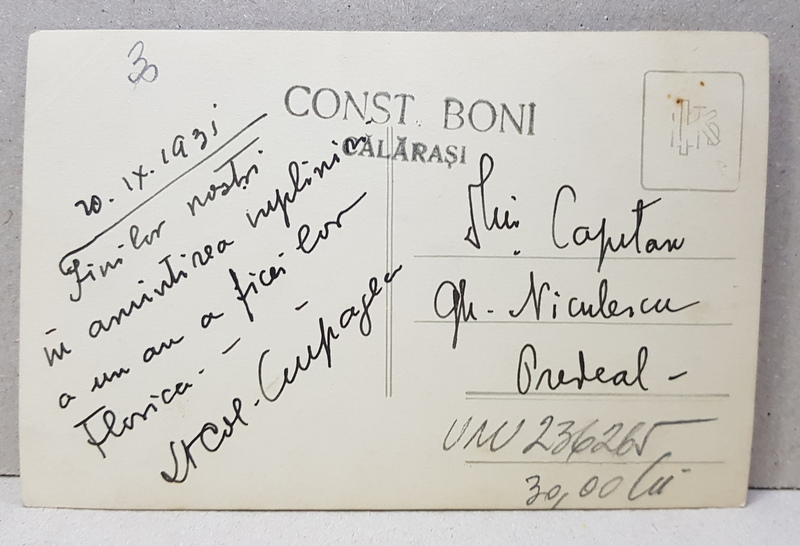 30
CONST. BONI
CĂLĂRAȘI
20.IX.1931
Finilor noștri
în amintirea împlinirii
a un an a ficei lor
Florica. – –
Lt Col. Cupagea
Capitan
Gh. Niculescu
Predeal –
UNU 236265
30,00 lei